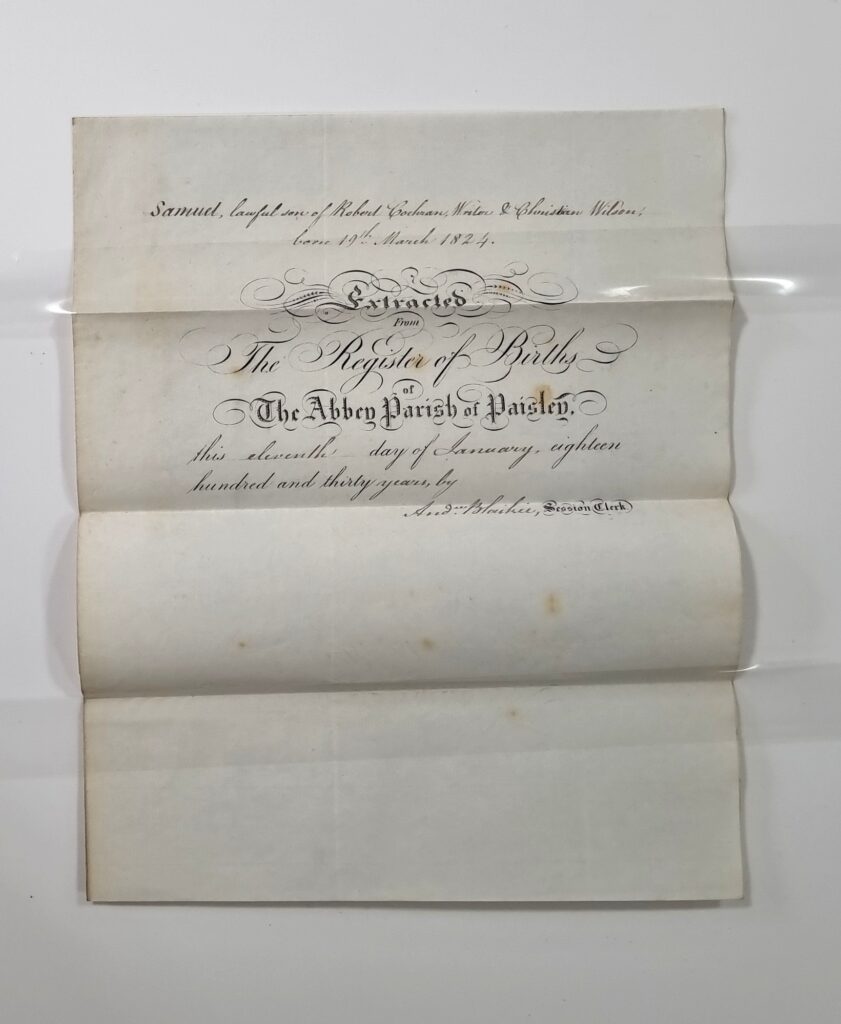 Samuel, lawful son of Robert Cochran, Writer & Christian Wilson;
born 19th March 1824.
Extracted
From
The Register of Births
of
The Abbey Parish of Paisley,
this eleventh day of January, eighteen
hundred and thirty years, by
Andw. Blaikie, Session Clerk